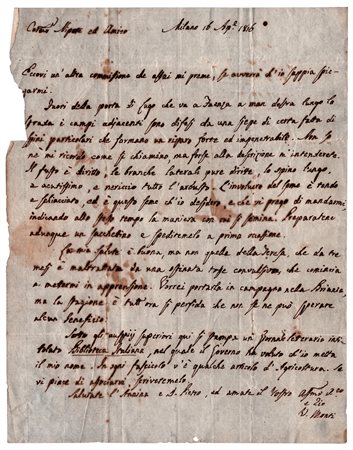 Carmo Nipote ed Amico Milano 16 Ap.e 1816
Eccovi un'altra commissione che assai mi preme, se avverrà ch'io sappia spie-
garmi.
Fuori della porta di Lugo che va a Faenza a man destra lungo lo
stradone i campi adjacenti sono difesi da una siepe di certa fatta di
spini particolari che formano un riparo forte ed impenetrabile. Non so
nè mi ricordo come si chiamino, ma forse alla descrizione m'intenderete.
Il fusto è diritto, le branche laterali pure diritte, lo spino lungo,
e acutissimo, e nericcio tutto l'arbusto. L'involucro del seme è tondo
e schiacciato, ed è questo seme ch'io desidero, e che vi prego di mandarmi
indicando allo stesso tempo la maniera con cui si semina. Preparatene
adunque un sacchettino e speditemelo a prima occasione.
La mia salute è buona, ma non quella della Teresa, che da tre
mesi è maltrattata da una ostinata tosse convulsiva, che comincia
a mettermi in apprensione. Vorrei portarla in campagna nella Brianza,
ma la stagione è tutt'ora sì perfida che non se ne può sperare
alcun beneficio.
Sotto gli auspizj superiori qui si stampa un Giornale letterario inti-
tolato Biblioteca Italiana, nel quale il Governo ha voluto ch'io metta
il mio nome. In ogni fascicolo v'è qualche articolo d'Agricoltura. Se
vi piace di associarvi scrivetemelo.
Salutate l'Annina e D. Pietro, ed amate il Vostro Affmo A.co
e Zio
V. Monti